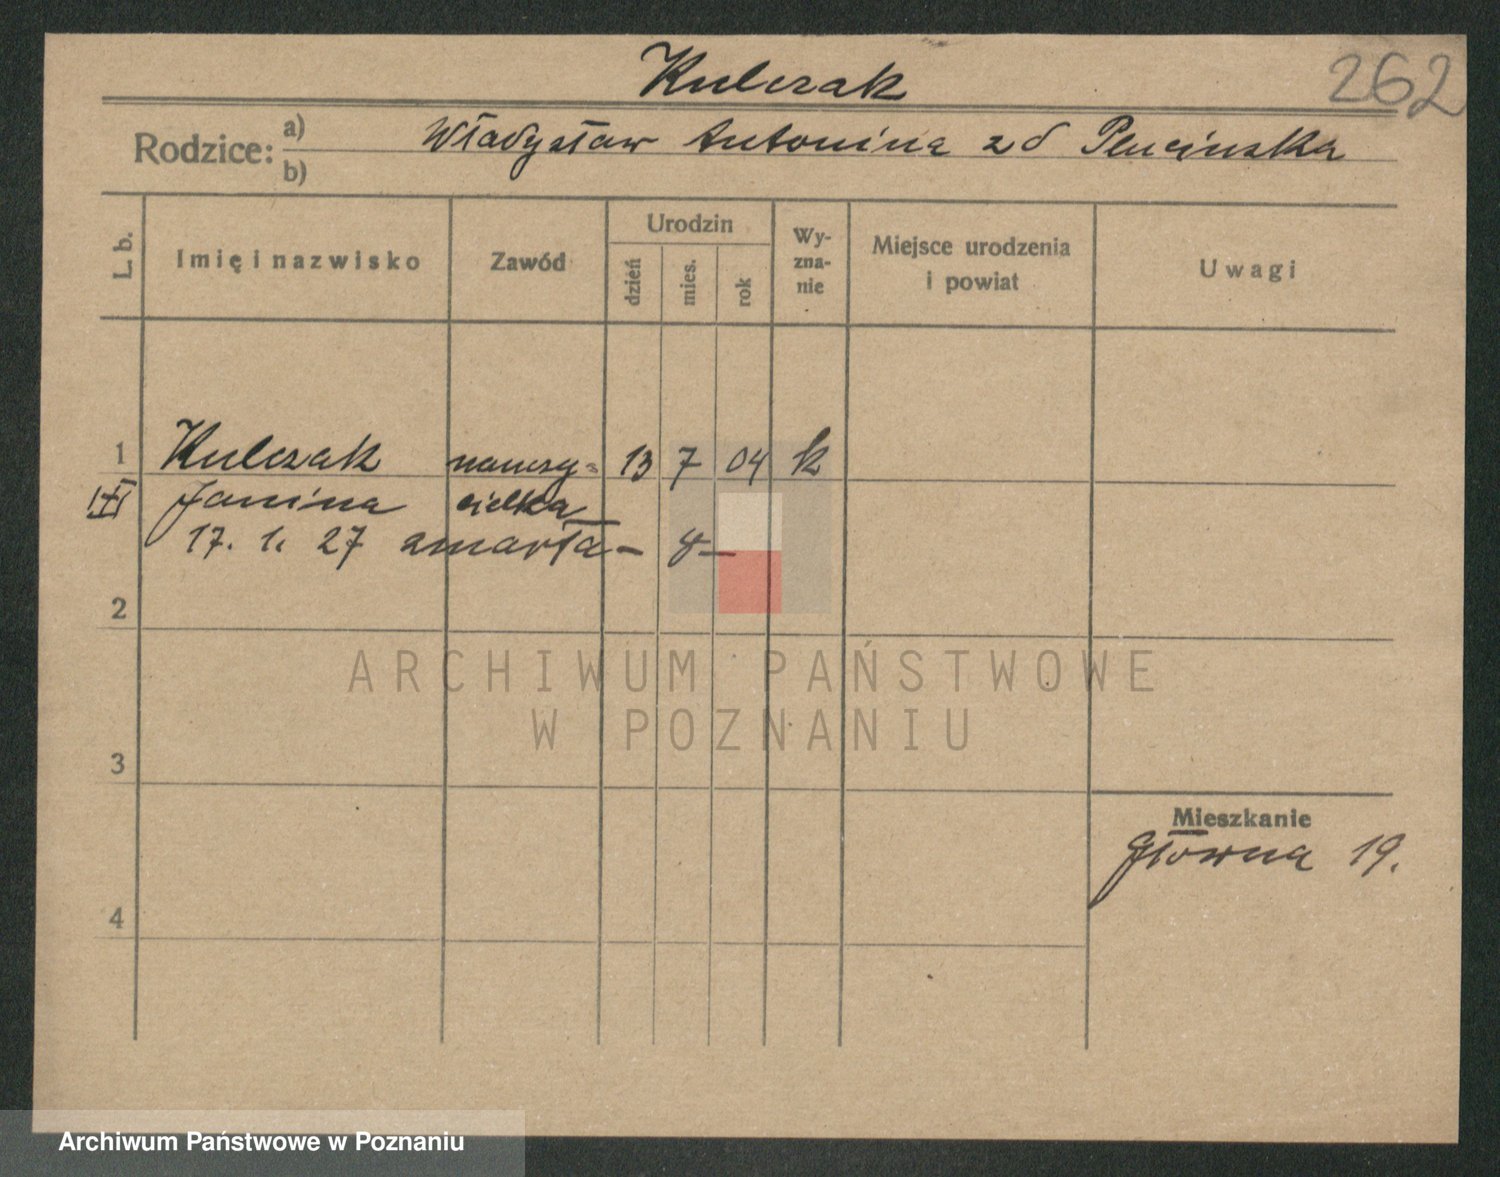 262
Kulczak
Rodzice: a) Władysław Antonina zd Plucinska
b)
L. b. Imię i nazwisko Zawód Urodzin dzień mies. rok Wy-zna-nie Miejsce urodzenia i powiat Uwagi
1 Kulczak nauczy= 13 7 04 k
Janina cielka
17. 1. 27 zmarła —
2
ARCHIWUM PAŃSTWOWE
W POZNANIU
3
Mieszkanie
Główna 19.
4
Archiwum Państwowe w Poznaniu